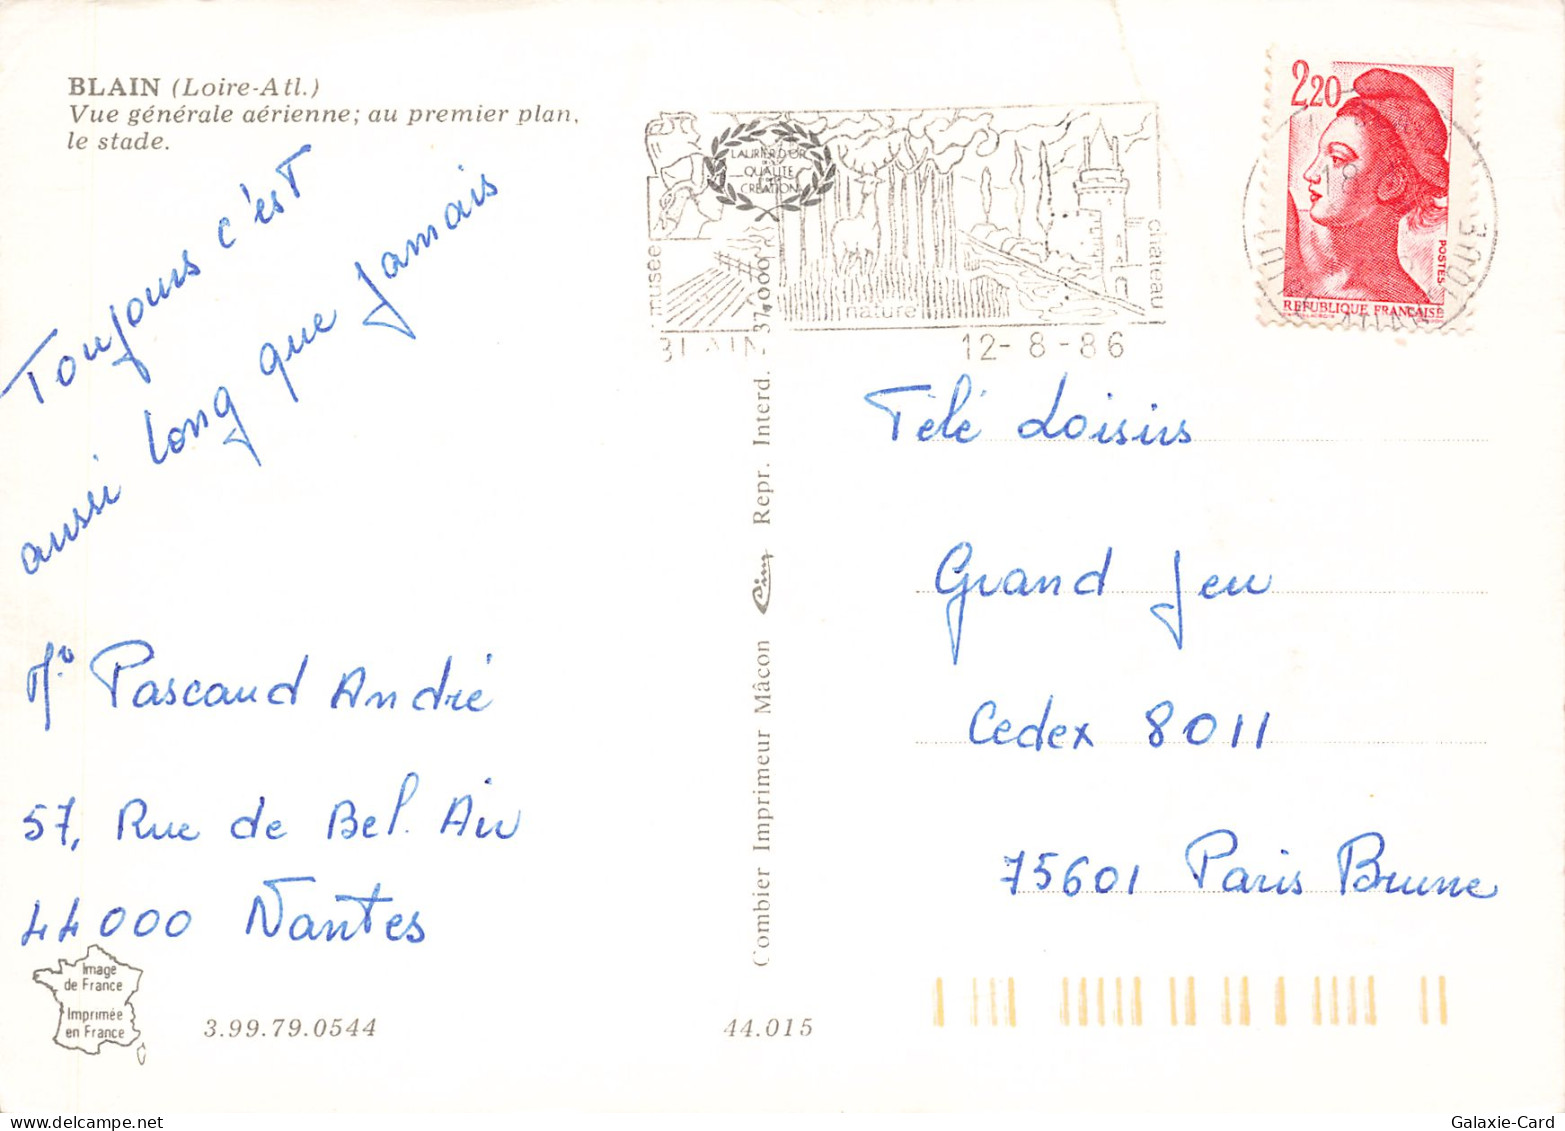 BLAIN (Loire-Atl.)
Vue générale aérienne; au premier plan,
le stade.
Toujours c'est
aussi long que Jamais
Mr Pascaud André
57, Rue de Bel. Air
44000 Nantes
Image
de France
Imprimée
en France
3.99.79.0544
44.015
Combier Imprimeur Mâcon Cim Repr. Interd. 37.000
LAURIER D'OR
QUALITÉ
CRÉATION
musée
nature
château
BLAIN
12-8-86
2,20
POSTES
REPUBLIQUE FRANÇAISE
Télé Loisirs
Grand Jeu
Cedex 8011
75601 Paris Brune
Galaxie-Card